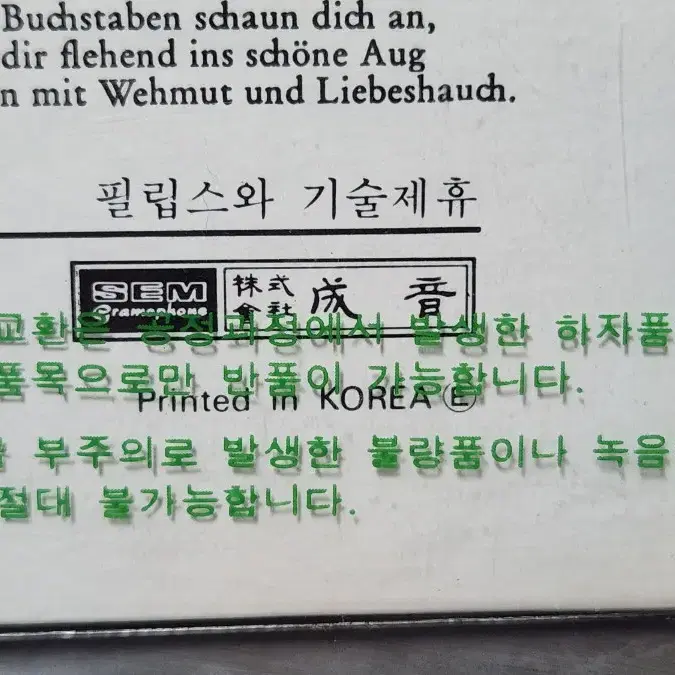 Buchstaben schaun dich an,
dir flehend ins schöne Aug
n mit Wehmut und Liebeshauch.
필립스와 기술제휴
SEM
Gramophone
株式
會社
成音
교환은 공정과정에서 발생한 하자품
품목으로만 반품이 가능합니다.
Printed in KOREA Ⓔ
부주의로 발생한 불량품이나 녹음
절대 불가능합니다.